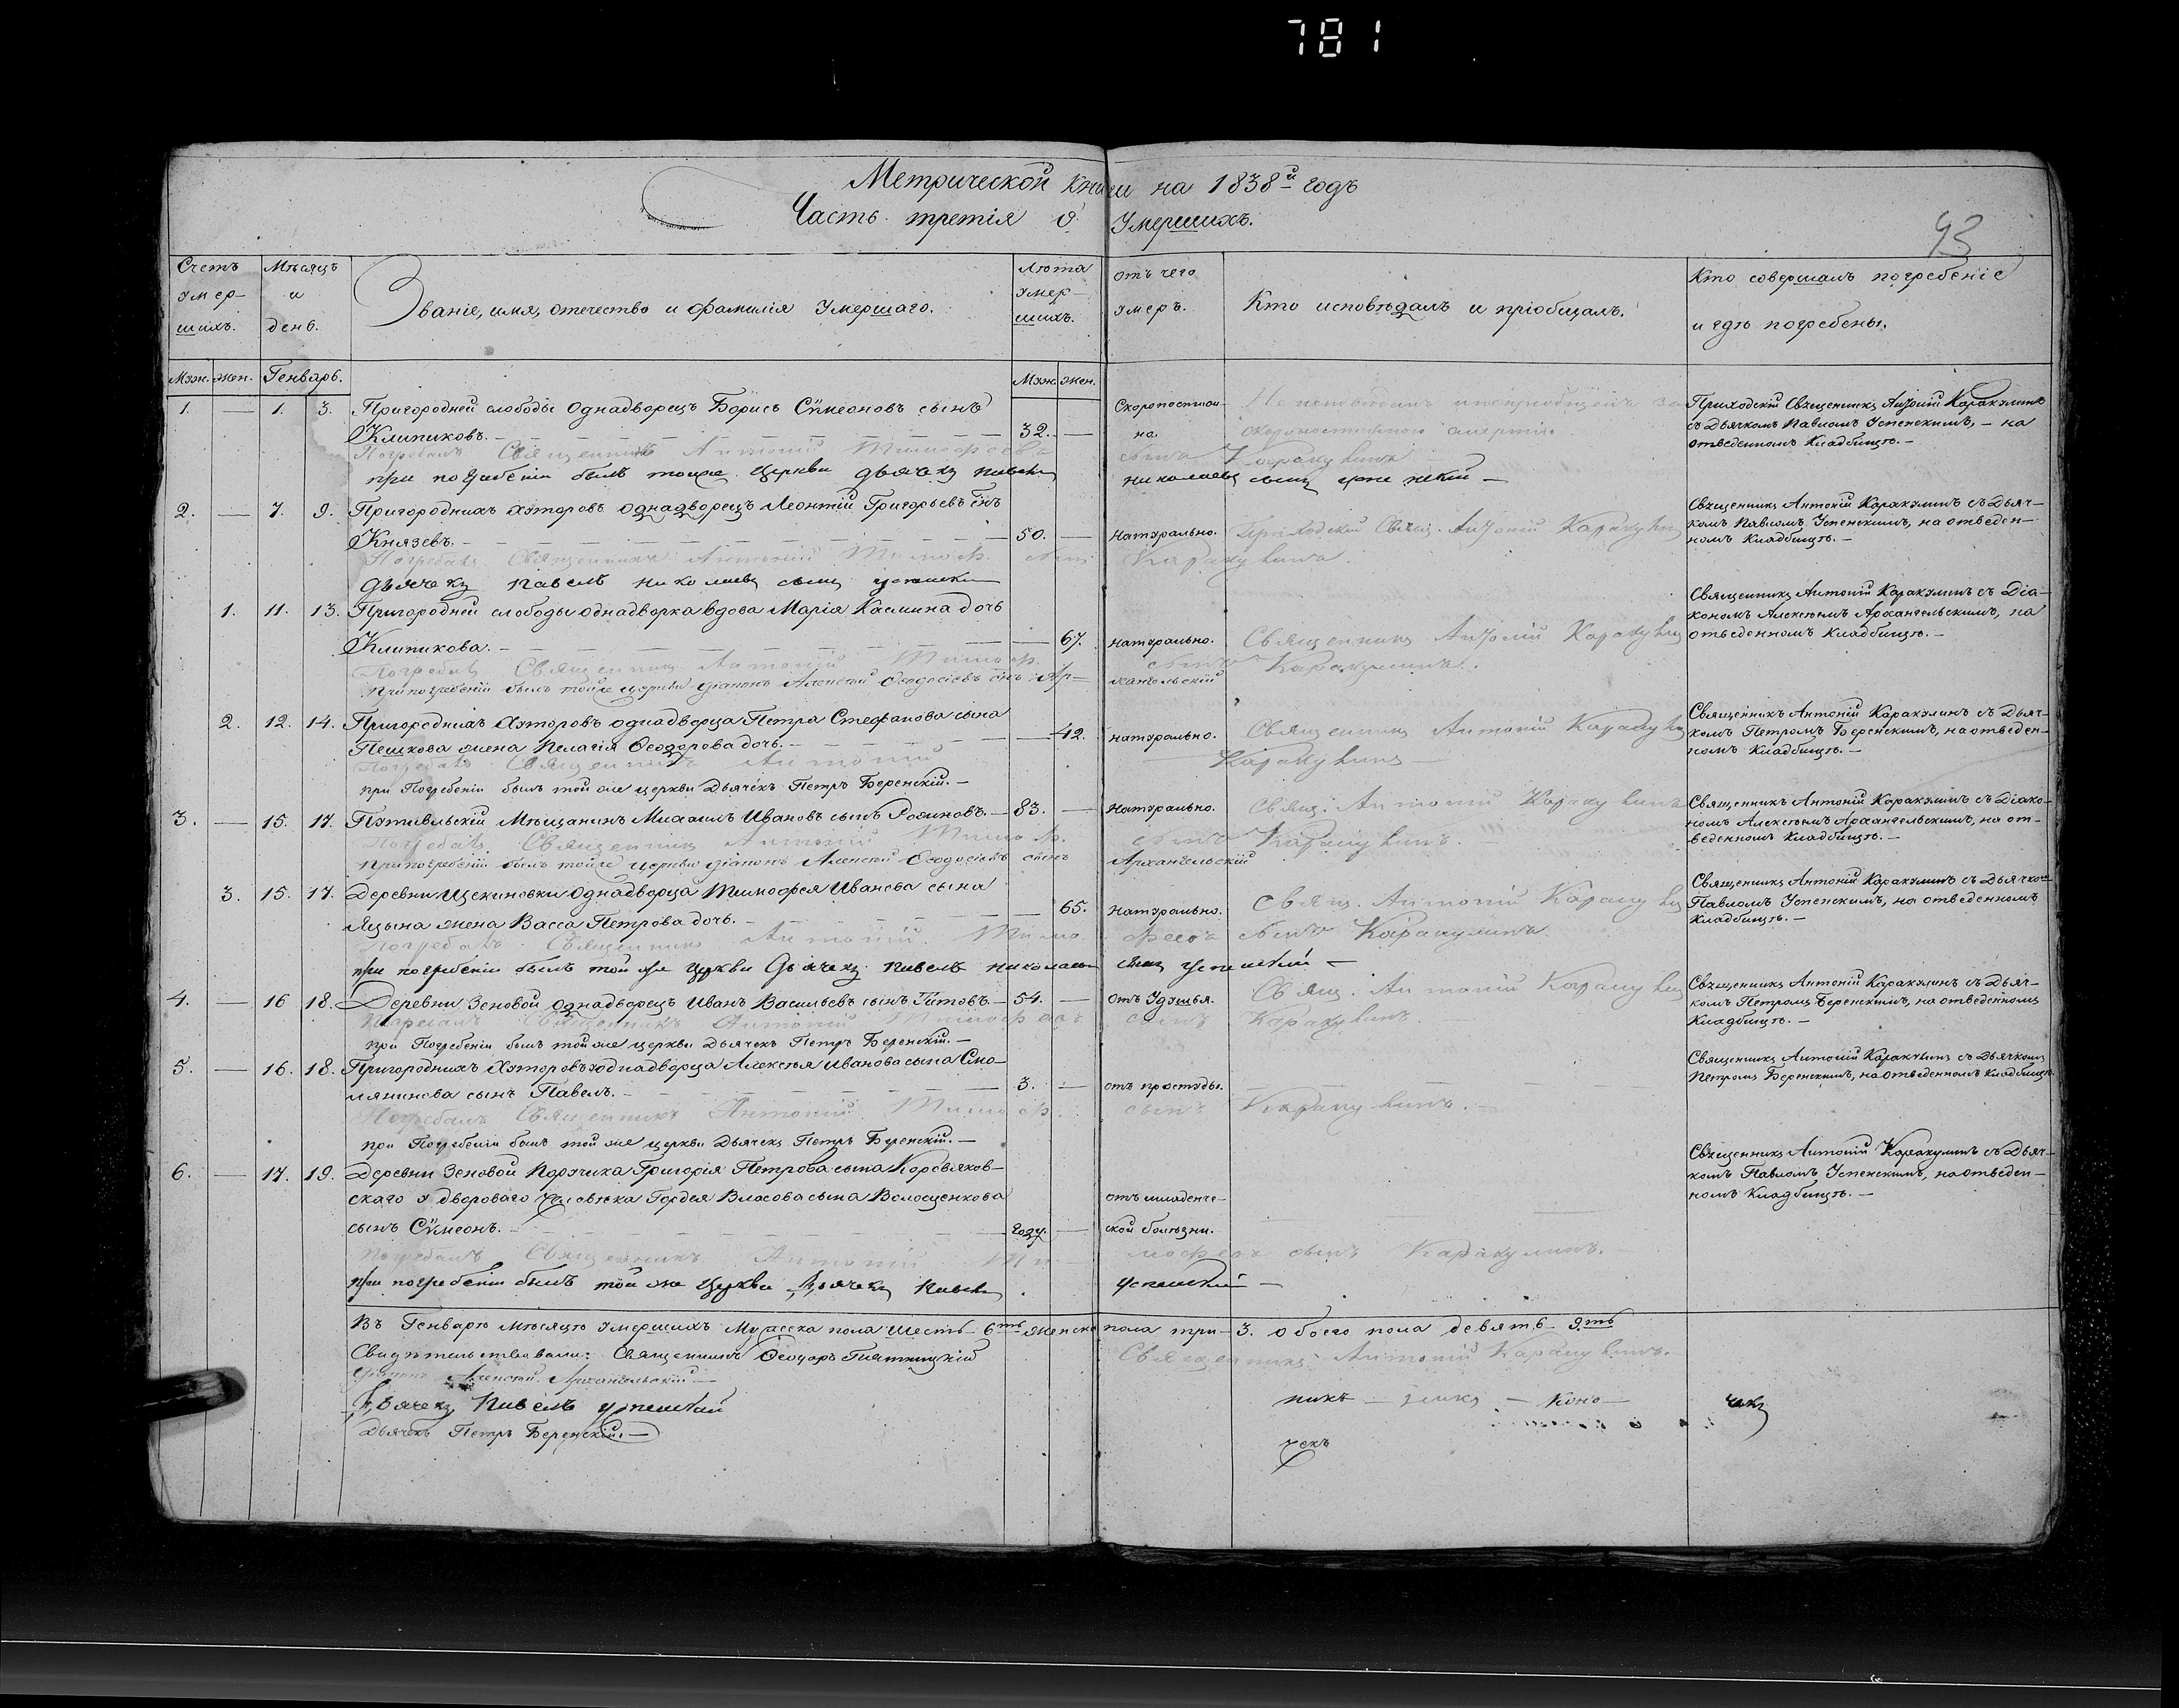 781
Метрической книги на 1838й годъ
Часть третія о Умершихъ.
93
Счетъ умер-шихъ.
Мѣсяцъ и день.
Званіе, имя, отечество и фамилія Умершаго.
Лѣта умер-шихъ.
отъ чего умеръ.
Кто исповѣдалъ и пріобщалъ.
Кто совершалъ погребеніе
и гдѣ погребены.
Муж. жен. Генварь.
Муж. жен.
1. — 1. 3. Пригородней слободы Однадворецъ Борисъ Сѵмеоновъ сынъ
Клипиковъ. — 32. —
Скоропостиж-
на.
Приходскій Священникъ Антоній Каракулинъ
съ Дьячкомъ Павломъ Успенскимъ, — на
отведенномъ Кладбищѣ. —
Погребалъ Священникъ Антоній Тимофеевъ сынъ Каракулинъ
при погребеніи былъ тойже Церкви дьячекъ Павелъ Николаевъ сынъ Успенскій —
2. — 7. 9. Пригородныхъ хуторовъ однадворецъ Леонтій Григорьевъ снъ
Князевъ. — 50. — натурально. Приходскій Свящ. Антоній Каракулинъ
Священникъ Антоній Каракулинъ съ Дьяч-
комъ Павломъ Успенскимъ, на отведен-
номъ Кладбищѣ. —
Погребалъ Священникъ Антоній Тимоф. сынъ Каракулинъ.
Дьячекъ Павелъ Николаевъ сынъ Успенскій
1. 11. 13. Пригородней слободы однадворка вдова Марія Касмина дочь
Клипикова. — 67. натурально. Священникъ Антоній Каракулинъ
Священникъ Антоній Каракулинъ съ Діа-
кономъ Алексѣемъ Архангельскимъ, на
отведенномъ Кладбищѣ. —
Погребалъ Священникъ Антоній Тимоф. сынъ Каракулинъ.
При погребеніи былъ тойже церкви діаконъ Алексѣй Ѳеодосіевъ снъ Ар-хангельскій
2. 12. 14. Пригородныхъ Хуторовъ однадворца Петра Стефанова сына
Пешкова жена Пелагія Ѳеодорова дочь. — 42. натурально. Священникъ Антоній Каракулинъ
Священникъ Антоній Каракулинъ съ Дьяч-
комъ Петромъ Беренскимъ, на отведен-
номъ Кладбищѣ. —
Погребалъ Священникъ Антоній Каракулинъ —
при Погребеніи былъ той же церкви Дьячекъ Петръ Беренскій. —
3. — 15. 17. Путивльскій Мѣщанинъ Михаилъ Ивановъ сынъ — 83. — Натурально. Свящ. Антоній Каракулинъ
Священникъ Антоній Каракулинъ съ Діако-
номъ Алексѣемъ Архангельскимъ, на от-
веденномъ Кладбищѣ. —
Погребалъ Священникъ Антоній Тимоф. сынъ Каракулинъ. —
При погребеніи былъ тойже церкви діаконъ Алексѣй Ѳеодосіевъ сынъ Архангельскій
3. 15. 17. Деревни Щекиновки Однадворца Тимофея Иванова сына
Яцына жена Васса Петрова дочь. — 65. натурально. Свящ. Антоній Каракулинъ
Священникъ Антоній Каракулинъ съ Дьячкомъ
Павломъ Успенскимъ, на отведенномъ
Кладбищѣ. —
Погребалъ Священникъ Антоній Тимо феевъ сынъ Каракулинъ
при погребеніи былъ той же Церкви Дьячекъ Павелъ Николаевъ сынъ Успенскій —
4. — 16 18. Деревни Зеновой Однадворецъ Иванъ Васильевъ сынъ Титовъ. — 54. — отъ Удушья. Свящ. Антоній Каракулинъ
Священникъ Антоній Каракулинъ съ Дьяч-
комъ Петромъ Беренскимъ, на отведенномъ
Кладбищѣ. —
Священникъ Антоній Тимофеевъ сынъ Каракулинъ. —
при Погребеніи былъ той же церкви Дьячекъ Петръ Беренскій. —
5. — 16. 18. Пригородныхъ Хуторовъ однадворца Алексѣя Иванова сына Смо-
лянинова сынъ Павелъ. — 3. — отъ простуды.
Священникъ Антоній Каракулинъ съ Дьячкомъ
Петромъ Беренскимъ, на отведенномъ кладбищѣ.
Погребалъ Священникъ Антоній Тимоф. сынъ Каракулинъ. —
при Погребеніи былъ той же церкви Дьячекъ Петръ Беренскій. —
6. — 17. 19. Деревни Зеновой Поручика Григорія Петрова сына
скаго у двороваго человѣка Гордея Власова сына Волощенкова
сынъ Сѵмеонъ. — году. — отъ младенче-
ской болѣзни.
Священникъ Антоній Каракулинъ съ Дьяч-
комъ Павломъ Успенскимъ, на отведен-
номъ Кладбищѣ. —
Погребалъ Священникъ Антоній Ти мофеевъ сынъ Каракулинъ. —
при погребеніи былъ той же Церкви Дьячекъ Павелъ Успенскій —
Въ Генварѣ мѣсяцѣ умершихъ Мужеска пола шесть — 6ть женска пола три — 3. обоего пола девять 9ть
Свидѣтельствовали: Священникъ Ѳеодоръ Пятницкій
Священникъ Антоній Каракулинъ.
Діаконъ Алексѣй Архангельскій —
Дьячекъ Павелъ Успенскій
Дьячекъ Петръ Беренскій. —